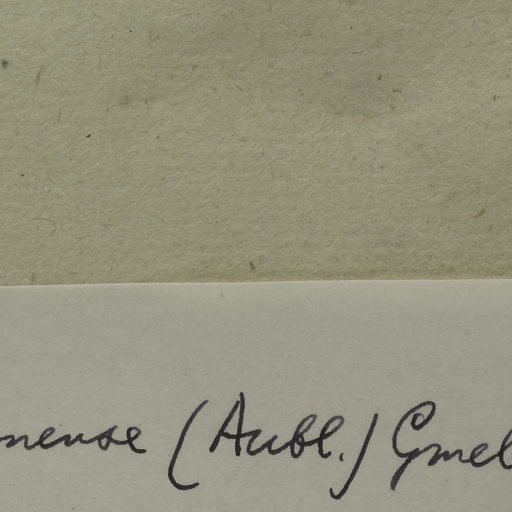 nense (Aubl.) Gmel